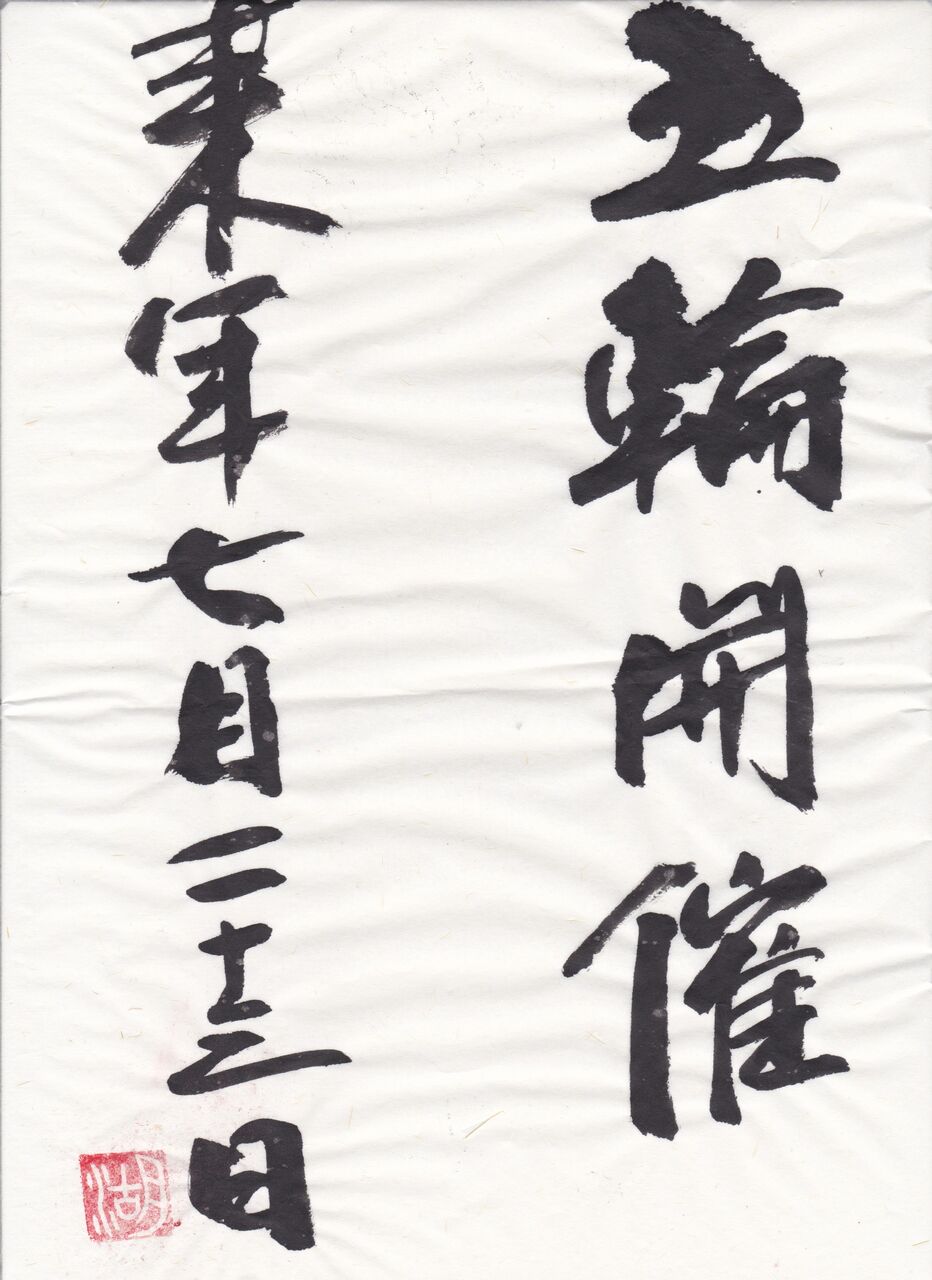 五輪開催
来年七月二十三日
湖